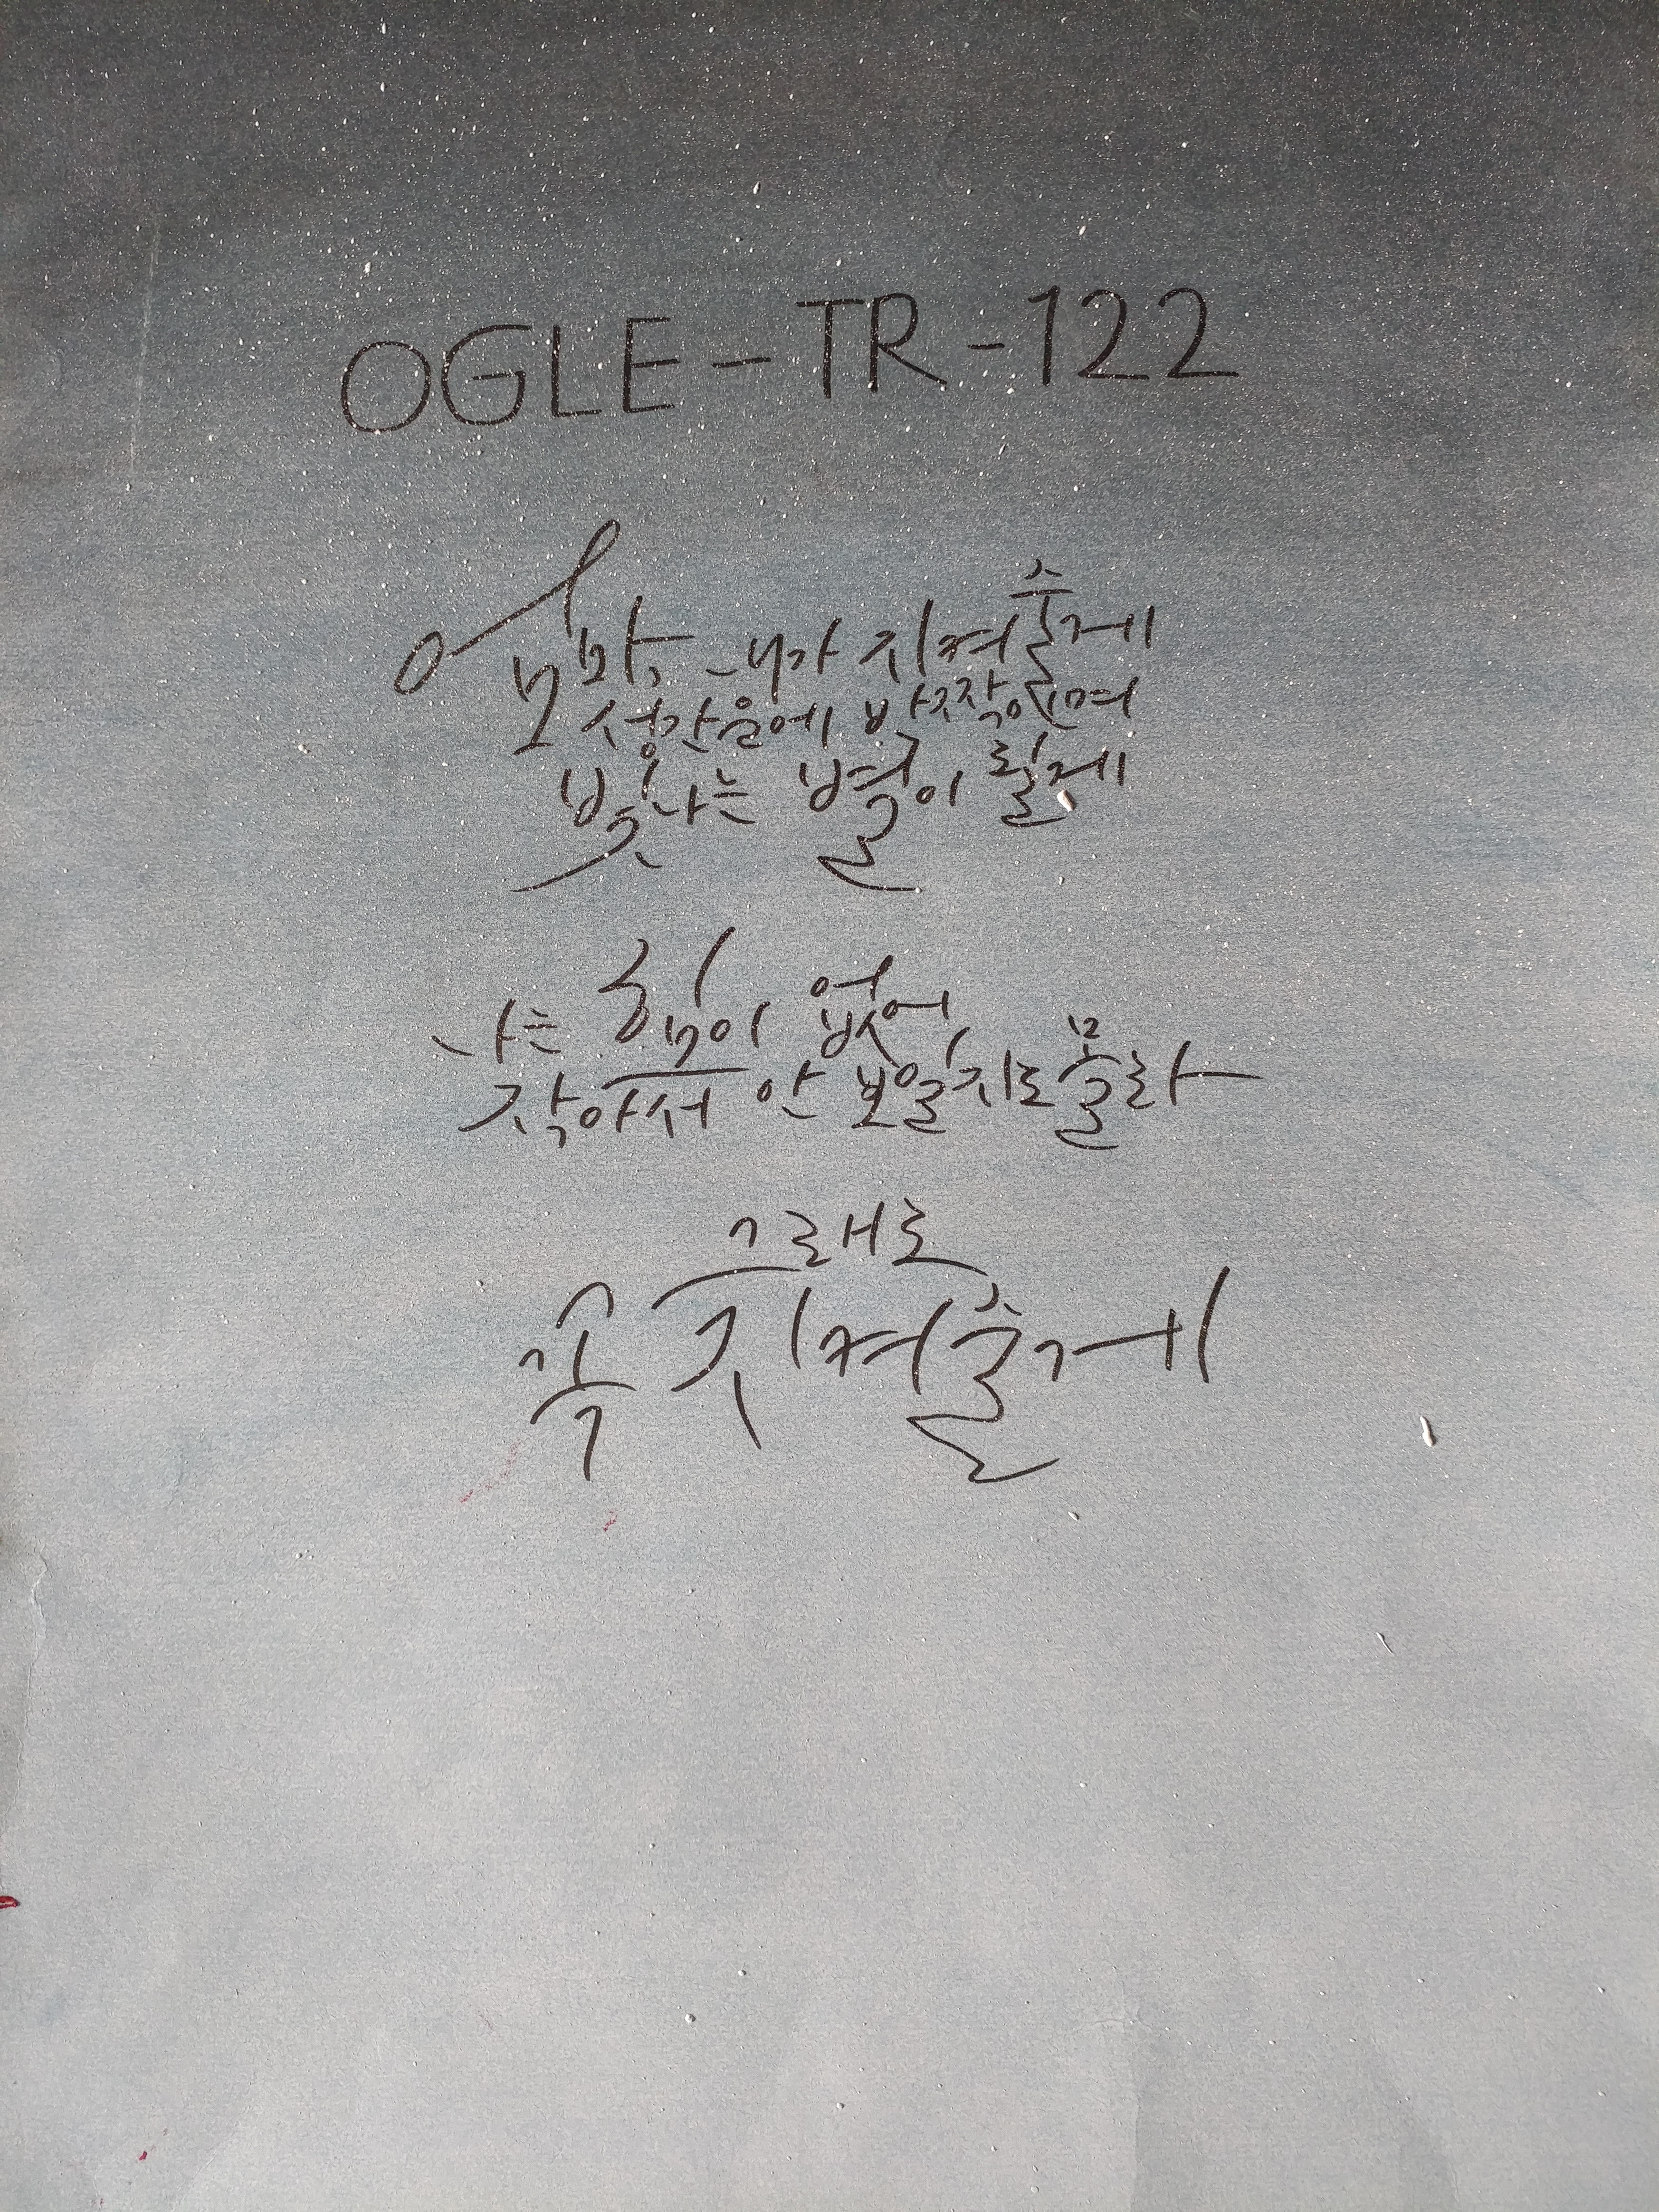 OGLE-TR-122
엄마, 내가 지켜줄게
성간운에 반짝이며
빛나는 별이 될게
나는 힘이 없어
작아서 안 보일지도 몰라
그래도
꼭 지켜줄게